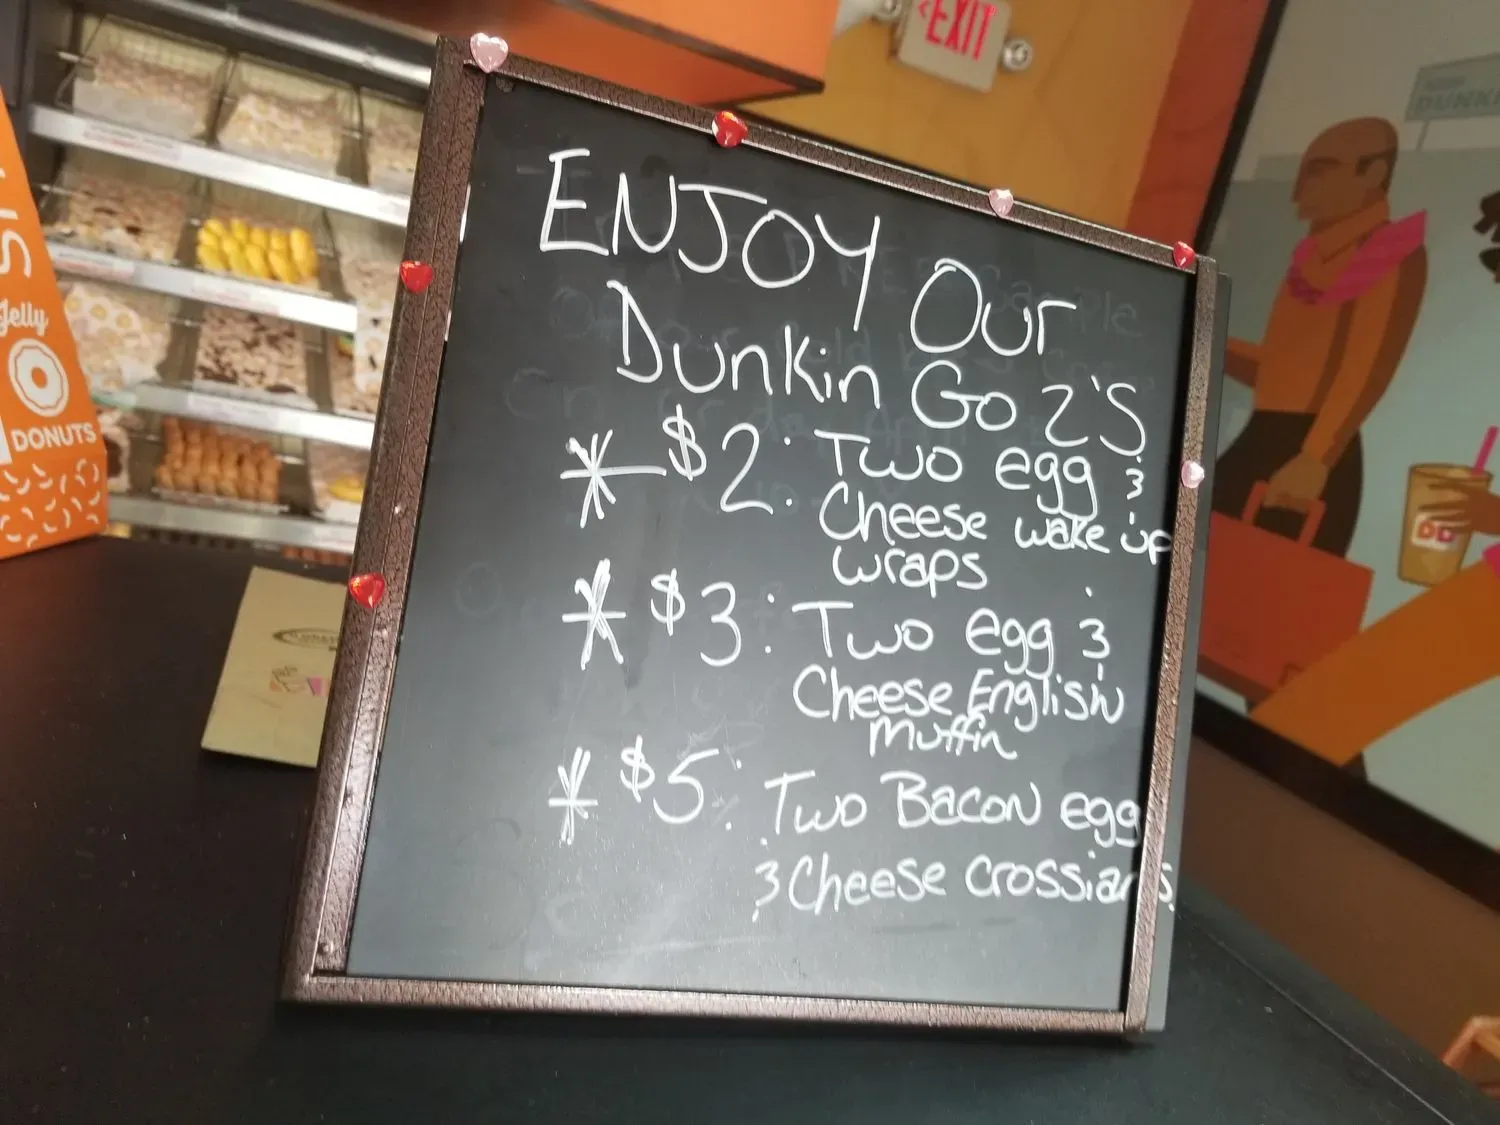 EXIT
DUNKI
Jelly
DONUTS
ENJOY Our
Dunkin Go 2'S
* $2: Two egg &
Cheese wake up
wraps
* $3: Two egg &
Cheese English
Muffin
* $5: Two Bacon egg
& Cheese Crossiants
DD